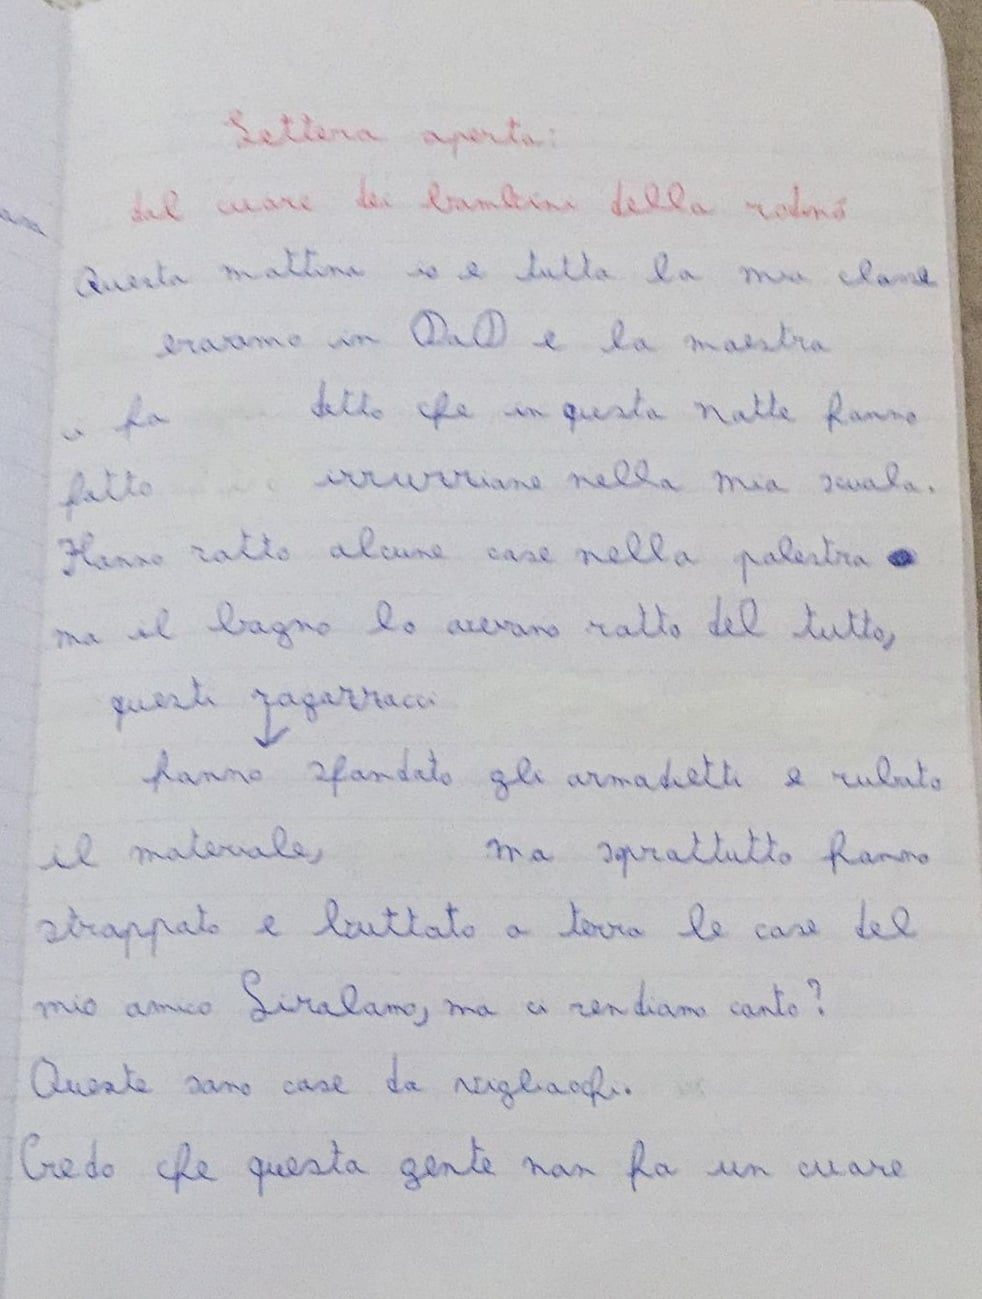 Lettera aperta:
dal cuore dei bambini della rodari
Questa mattina io e tutta la mia classe
eravamo in DaD e la maestra
ci ha detto che in questa notte hanno
fatto irruzzione nella mia scuola.
Hanno rotto alcune cose nella palestra
ma il bagno lo avevano rotto del tutto,
questi ragazzacci
hanno sfondato gli armadietti e rubato
il materiale, ma soprattutto hanno
strappato e buttato a terra le cose del
mio amico Girolamo, ma ci rendiamo conto?
Queste sono cose da vigliacchi.
Credo che questa gente non ha un cuore